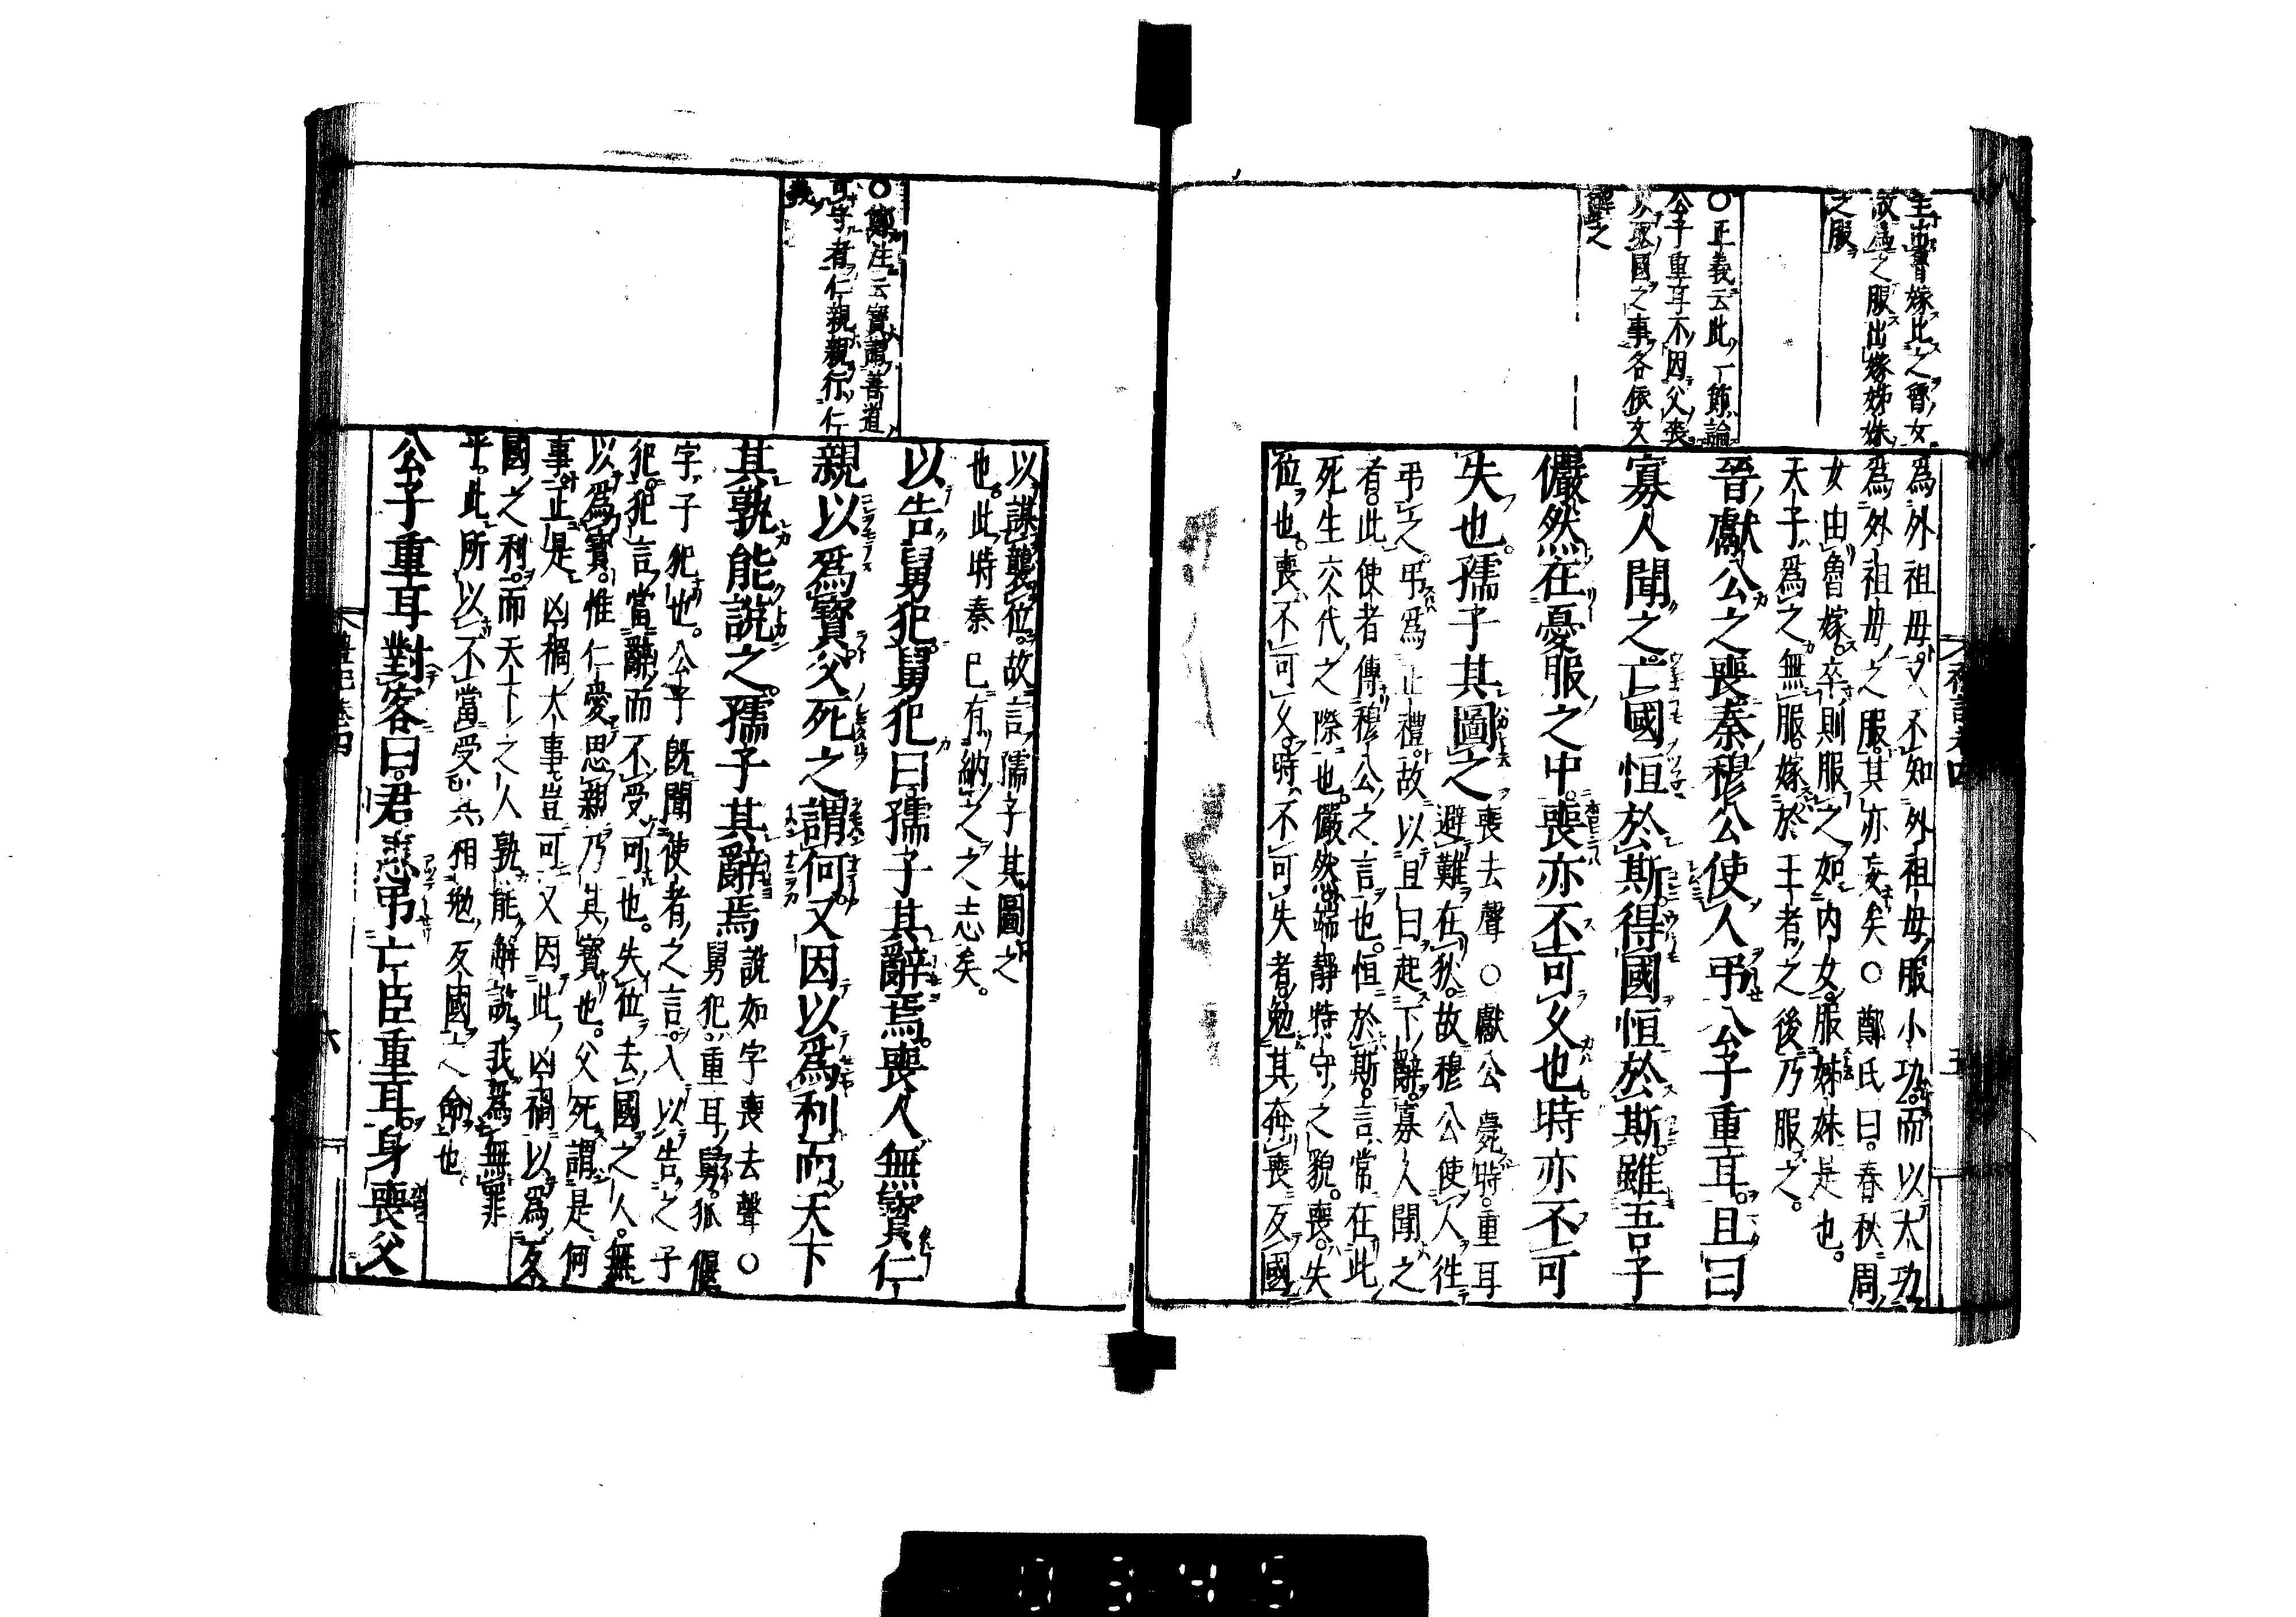 為外祖母又不知外祖母服小功而以大功
為外祖母之服其亦妄矣○鄭氏曰春秋周
女由魯嫁卒則服之如內女服姊妹是也
天子為之無服嫁於王者之後乃服之
晉獻公之喪秦穆公使人弔公子重耳且曰
寡人聞之亡國恒於斯得國恒於斯雖吾子
儼然在憂服之中喪亦不可久也時亦不可
失也孺子其圖之
喪去聲○獻公薨時重耳
避難在狄故穆公使人往
弔之弔為正禮故以且曰起下辭寡人聞之
者此使者傳穆公之言也恒於斯言常在此
死生交代之際也儼然端靜持守之貌喪失
位也喪不可久時不可失者勉其奔喪反國
之服出嫁姊妹
之服
○正義云此一節論
公子重耳不因父喪
以取國之事各依文
解之
以謀襲位故言孺子其圖之
也此時秦已有納之之志矣
以告舅犯舅犯曰孺子其辭焉喪人無寶仁
親以為寶父死之謂何又因以為利而天下
其孰能說之孺子其辭焉
說如字喪去聲○
舅犯重耳舅狐偃
字子犯也公子既聞使者之言入以告之子
犯犯言當辭而不受可也失位去國之人無
以為寶惟仁愛思親乃其寶也父死謂是何
事正是凶禍大事豈可又因此凶禍以為反
國之利而天下之人孰能解說我為無罪
乎此所以不當受其相勉反國之命也
公子重耳對客曰君惠弔亡臣重耳身喪父
○鄭注云寶謂善道
可守者仁親親行仁
義
禮記卷四
六